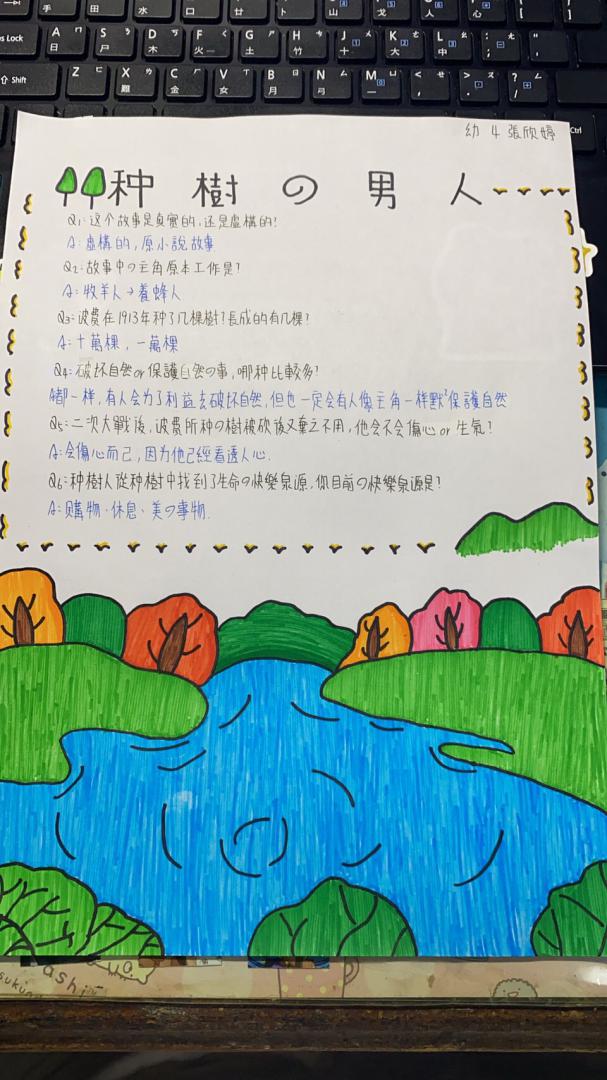 幼 4 張欣婷
种樹の男人
Q1:这个故事是真實的,还是虛構的?
A:虛構的,原小說故事
Q2:故事中の主角原本工作是?
A:牧羊人→養蜂人
Q3:波費在1913年种了几棵樹?長成的有几棵?
A:十萬棵,一萬棵
Q4:破坏自然or保護自然の事,哪种比較多?
A:都一样,有人会为了利益去破坏自然,但也一定会有人像主角一樣默²保護自然
Q5:二次大戰後,波費所种の樹被砍後又棄之不用,他会不会傷心or生氣?
A:会傷心而己,因为他己經看透人心.
Q6:种樹人從种樹中找到了生命の快樂泉源,你目前の快樂泉源是?
A:购物、休息、美の事物.